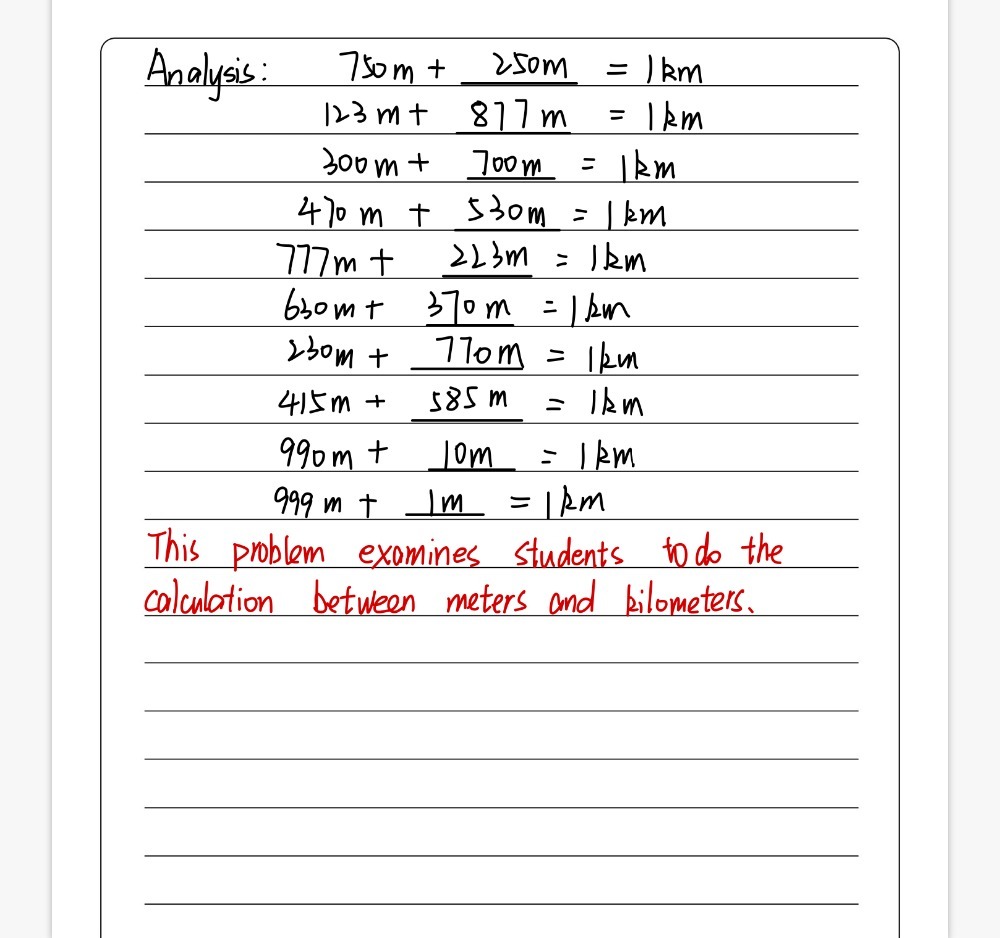 Analysis: 750m + 250m = 1km
123m + 877m = 1km
300m + 700m = 1km
470m + 530m = 1km
777m + 223m = 1km
630m + 370m = 1km
230m + 770m = 1km
415m + 585m = 1km
990m + 10m = 1km
999m + 1m = 1km
This problem examines students to do the
calculation between meters and kilometers.